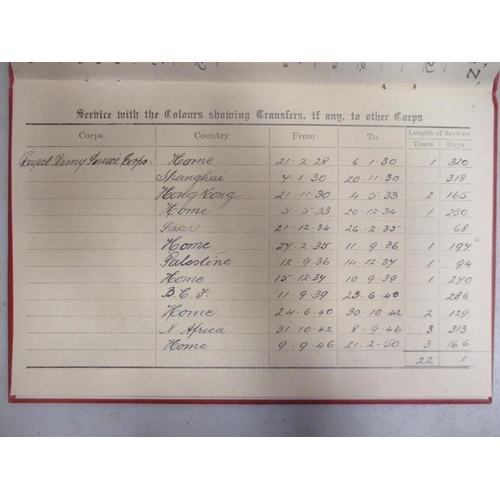 Service with the Colours showing Transfers, if any, to other Corps
Corps Country From To Length of Service
Years Days
Royal Army Service Corps. Home 21·2·28 6·1·30 1 320
Shanghai 7·1·30 20·11·30 318
Hong Kong 21·11·30 4·5·33 2 165
Home 5·5·33 20·12·34 1 230
21·12·34 26·2·35 68
Home 27·2·35 11·9·36 1 197
Palestine 12·9·36 14·12·37 1 94
Home 15·12·37 10·9·39 1 270
B.E.F. 11·9·39 23·6·40 286
Home 24·6·40 30·10·42 2 129
N. Africa 31·10·42 8·9·46 3 313
Home 9·9·46 21·2·50 3 166
22 1